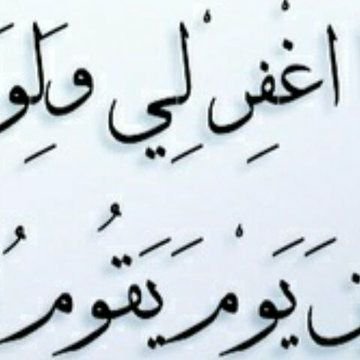 اغْفِرْ لِي وَلِوَ
نَ يَوْمَ يَقُومُ